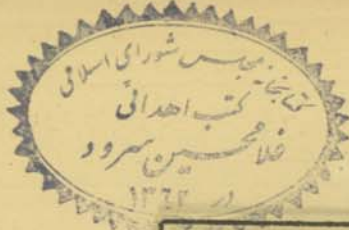 کتابخانه مجلس شورای اسلامی
کتب اهدائی
غلامحسین سرود
در ۱۳۶۲